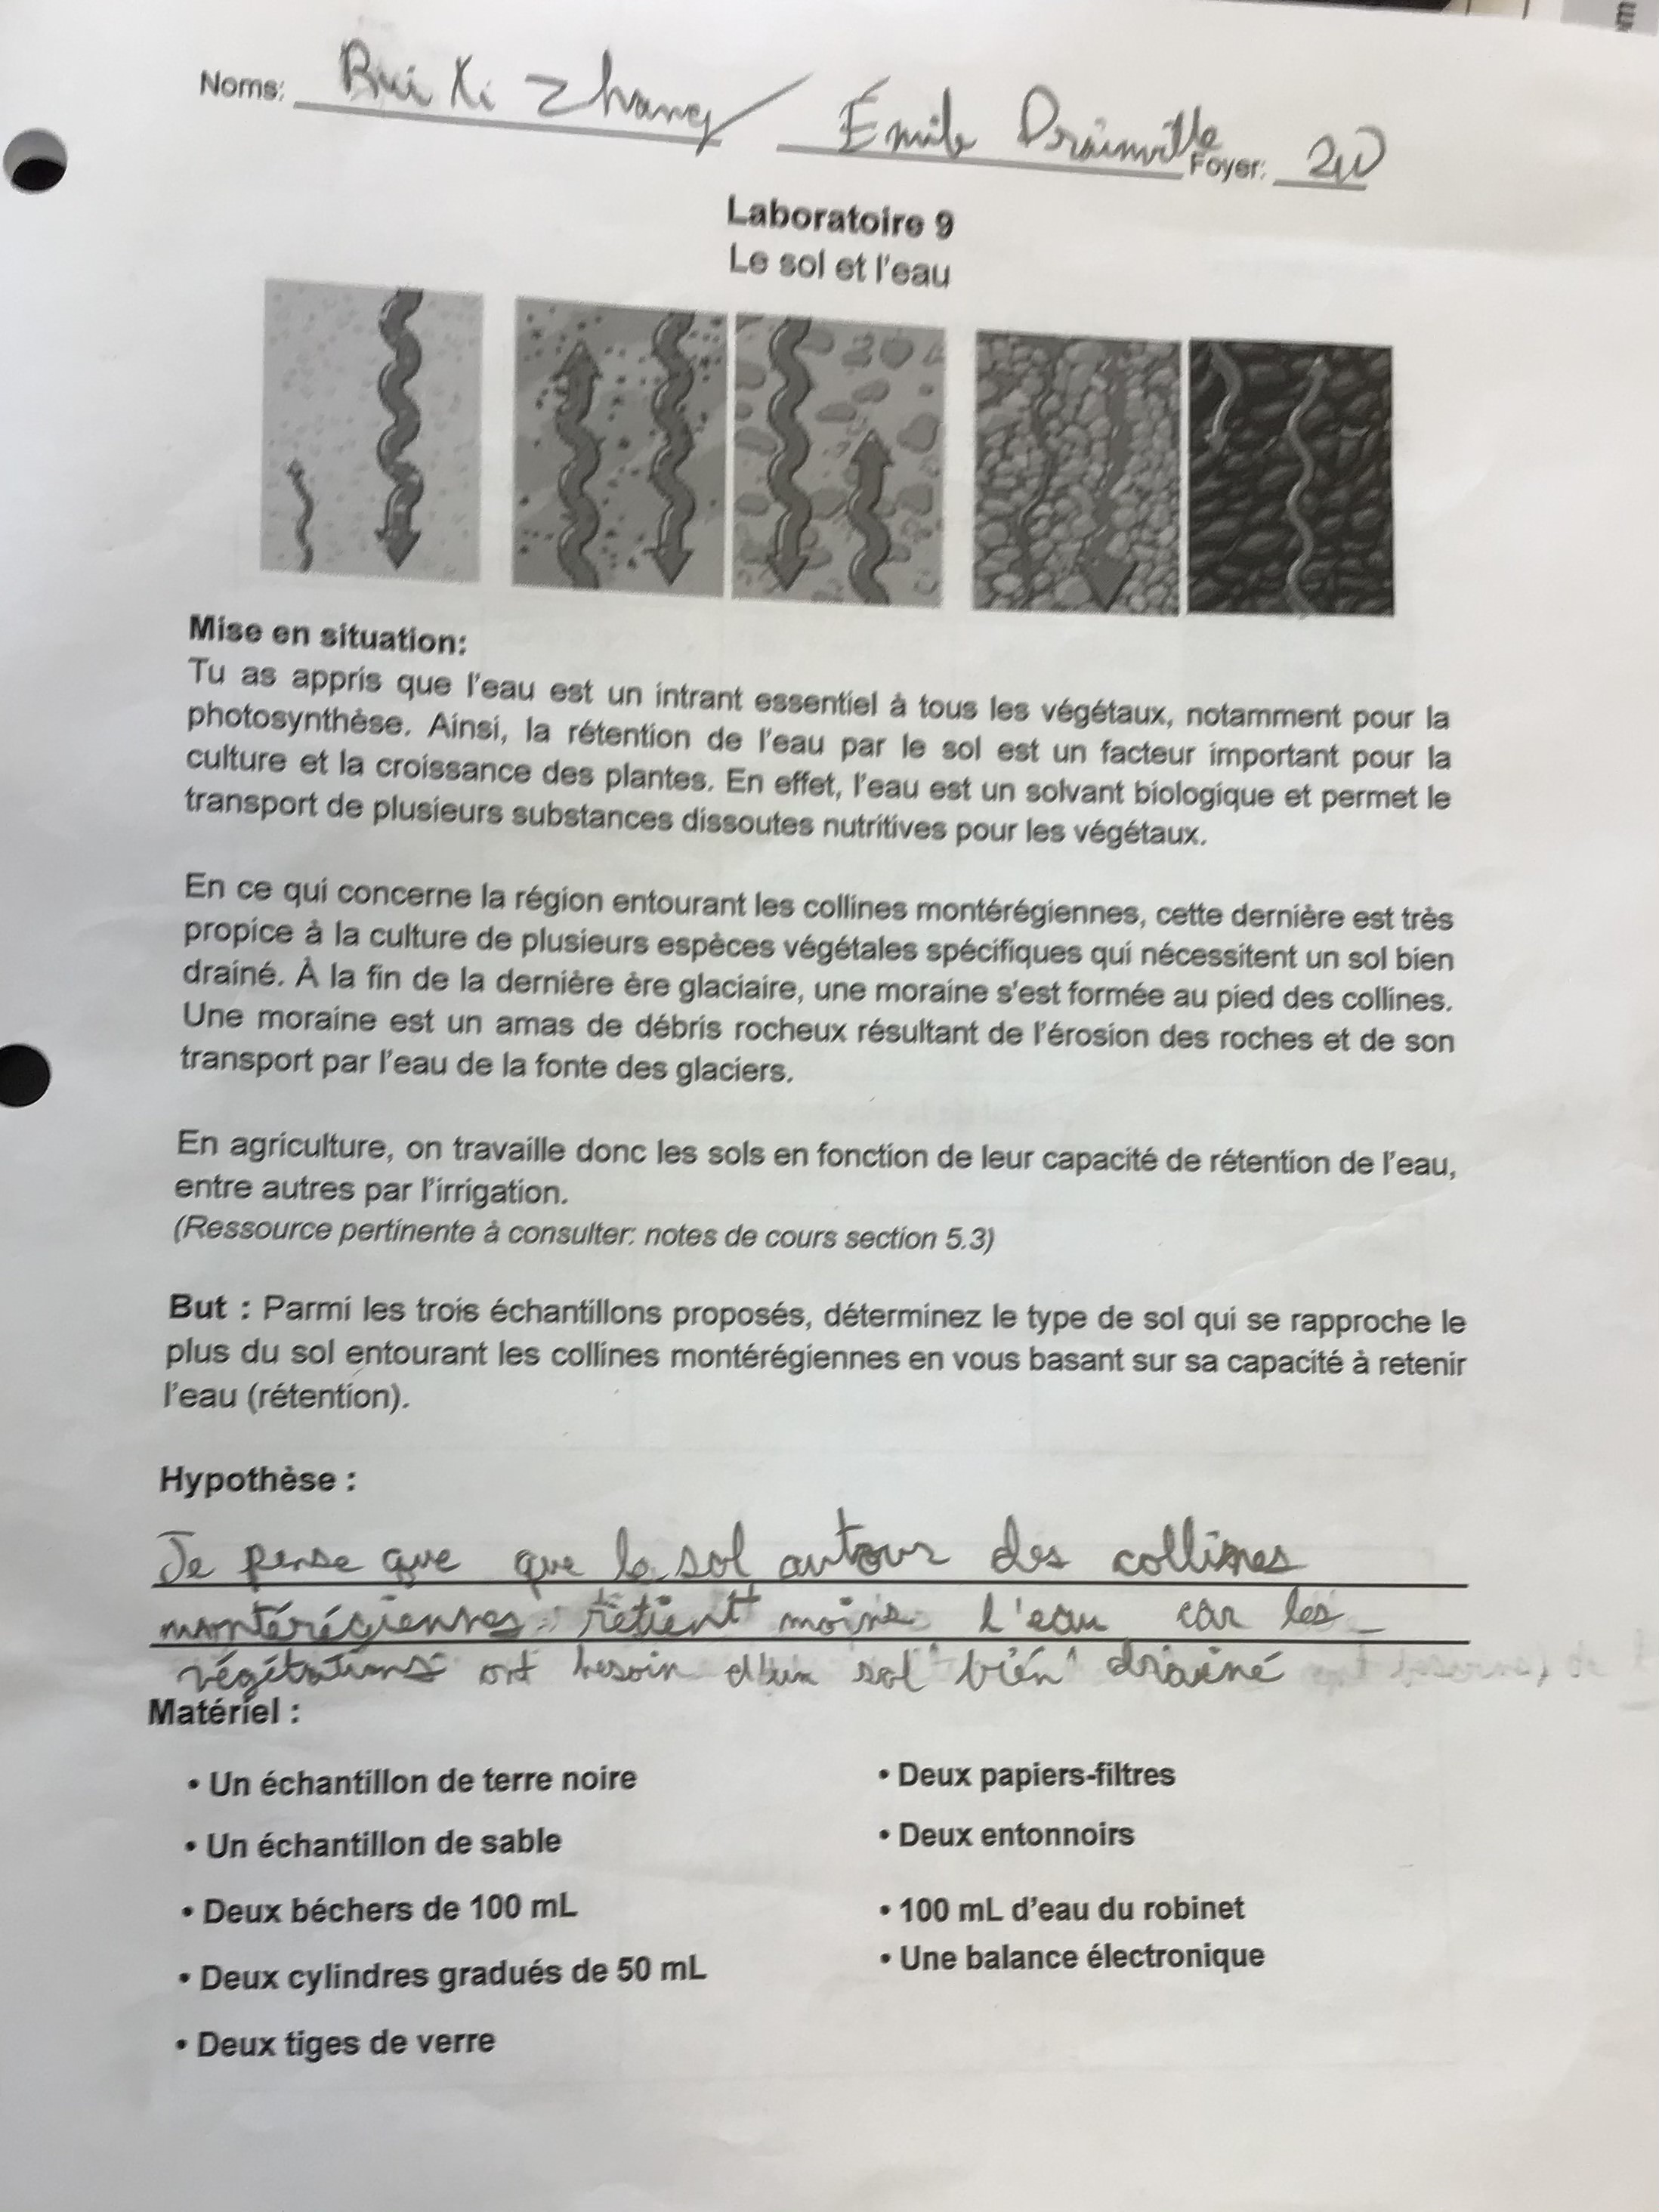 Noms: Rui Xi Zhang / Émile Drainville Foyer: 20
Laboratoire 9
Le sol et l'eau
Mise en situation:
Tu as appris que l'eau est un intrant essentiel à tous les végétaux, notamment pour la
photosynthèse. Ainsi, la rétention de l'eau par le sol est un facteur important pour la
culture et la croissance des plantes. En effet, l'eau est un solvant biologique et permet le
transport de plusieurs substances dissoutes nutritives pour les végétaux.
En ce qui concerne la région entourant les collines montérégiennes, cette dernière est très
propice à la culture de plusieurs espèces végétales spécifiques qui nécessitent un sol bien
drainé. À la fin de la dernière ère glaciaire, une moraine s'est formée au pied des collines.
Une moraine est un amas de débris rocheux résultant de l'érosion des roches et de son
transport par l'eau de la fonte des glaciers.
En agriculture, on travaille donc les sols en fonction de leur capacité de rétention de l'eau,
entre autres par l'irrigation.
(Ressource pertinente à consulter: notes de cours section 5.3)
But : Parmi les trois échantillons proposés, déterminez le type de sol qui se rapproche le
plus du sol entourant les collines montérégiennes en vous basant sur sa capacité à retenir
l'eau (rétention).
Hypothèse :
Je pense que que le sol autour des collines
montérégiennes retient moins l'eau car les
végétations ont besoin d'un sol bien drainé
Matériel :
• Un échantillon de terre noire
• Un échantillon de sable
• Deux béchers de 100 mL
• Deux cylindres gradués de 50 mL
• Deux tiges de verre
• Deux papiers-filtres
• Deux entonnoirs
• 100 mL d'eau du robinet
• Une balance électronique